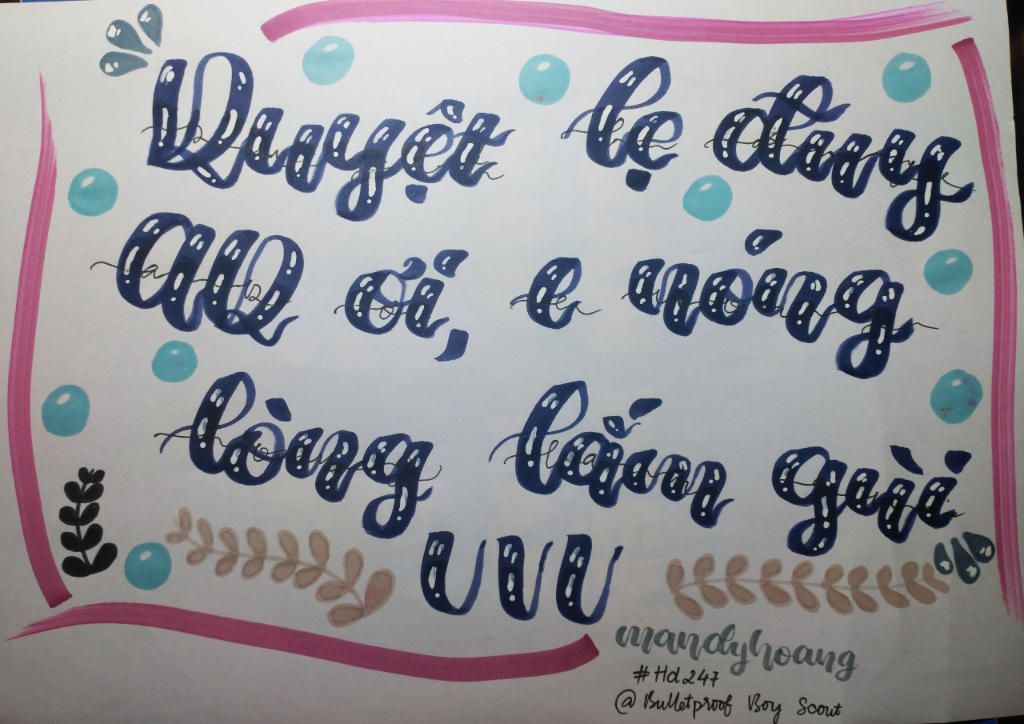 Quyệt lẹ đuy
AQ ơi, e nóng
lòng lắm gùi
uuu
mandyhoang
#Hd247
@Bulletproof Boy Scout